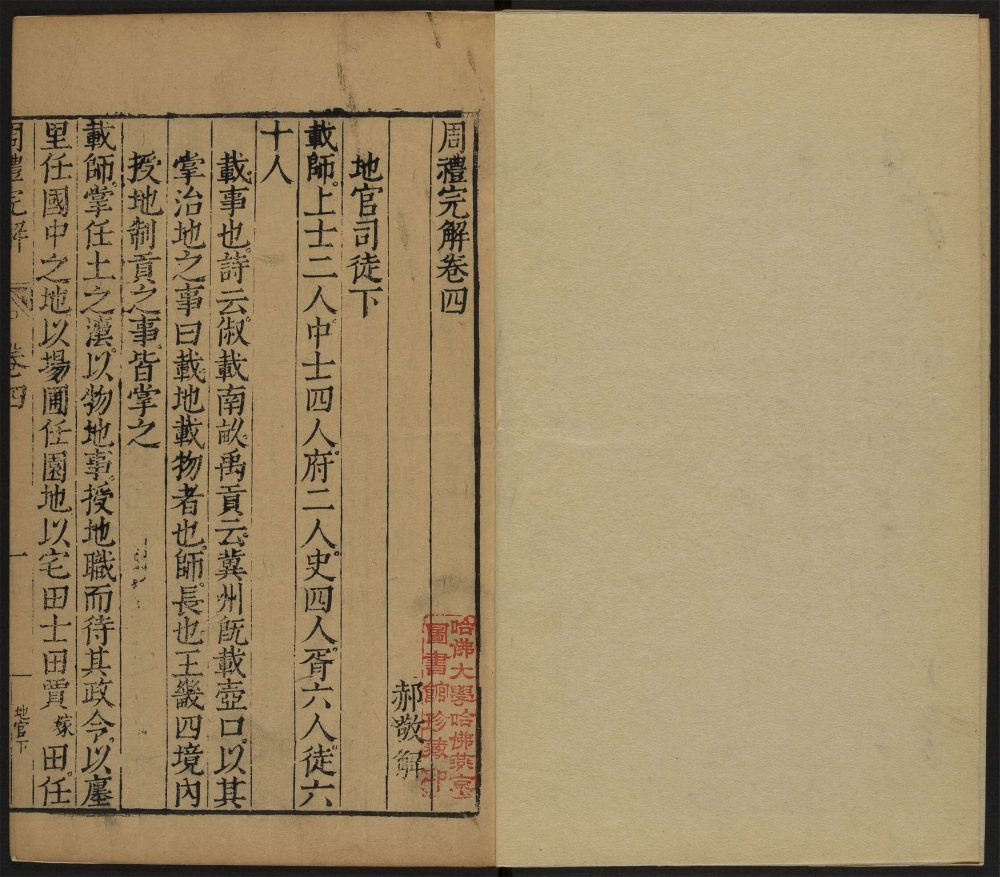 周禮完解卷四
郝敬解
地官司徒下
載師。上士二人。中士四人。府二人。史四人。胥六人。徒六
十人
載。事也。詩云。俶載南畝。禹貢云。冀州旣載壺口。以其
掌治地之事曰載。地載物者也。師。長也。王畿四境內
授地制貢之事。皆掌之
載師。掌任土之灋。以物地事。授地職而待其政令。以廛
里任國中之地。以場圃任園地。以宅田士田賈嫁田。任
周禮完解
卷四
一
地官下
哈佛大學哈佛燕京
圖書館珍藏印